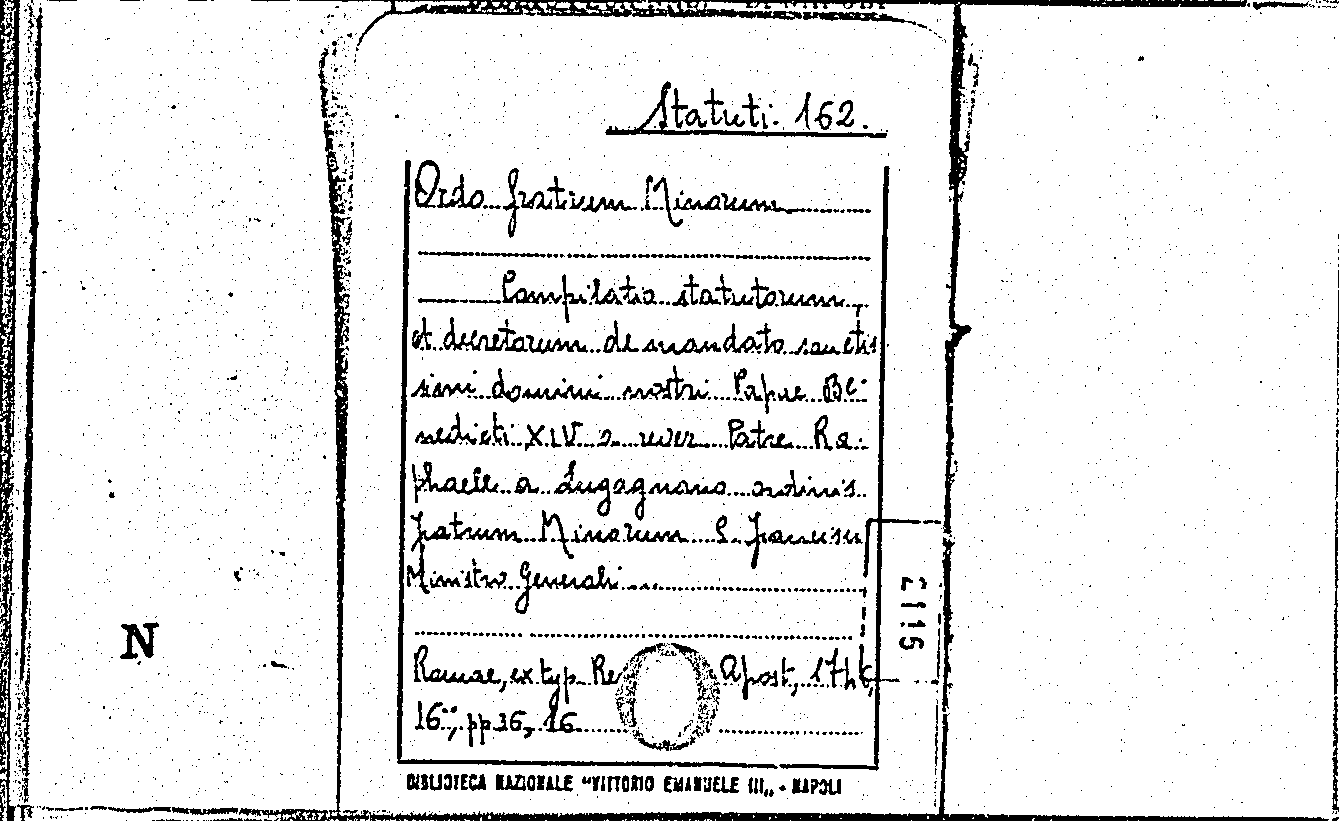 Statuti. 162.
Ordo fratrum Minorum
Compilatio statutorum
et decretorum de mandato sanctis
simi domini nostri Papae Be-
nedicti XIV a rever Patre Ra-
phaele a Lugagnano ordinis
fratrum Minorum S. Francisci
Ministro Generali
Romae, ex typ. Re Apost,
16°, pp 36, 16
BIBLIOTECA NAZIONALE "VITTORIO EMANUELE III" - NAPOLI
N